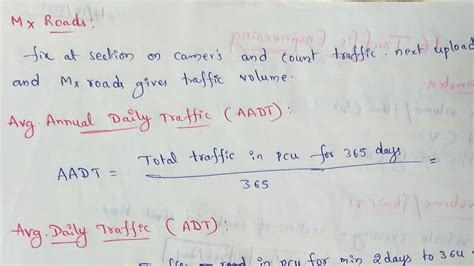 Mx Roads:
fix at section on camer's and count traffic. next upload
and Mx roads gives traffic volume.
Avg. Annual Daily Traffic (AADT):
AADT = Total traffic in pcu for 365 days =
365
Avg. Daily Traffic (ADT):
read in pcu for min 2 days to 364